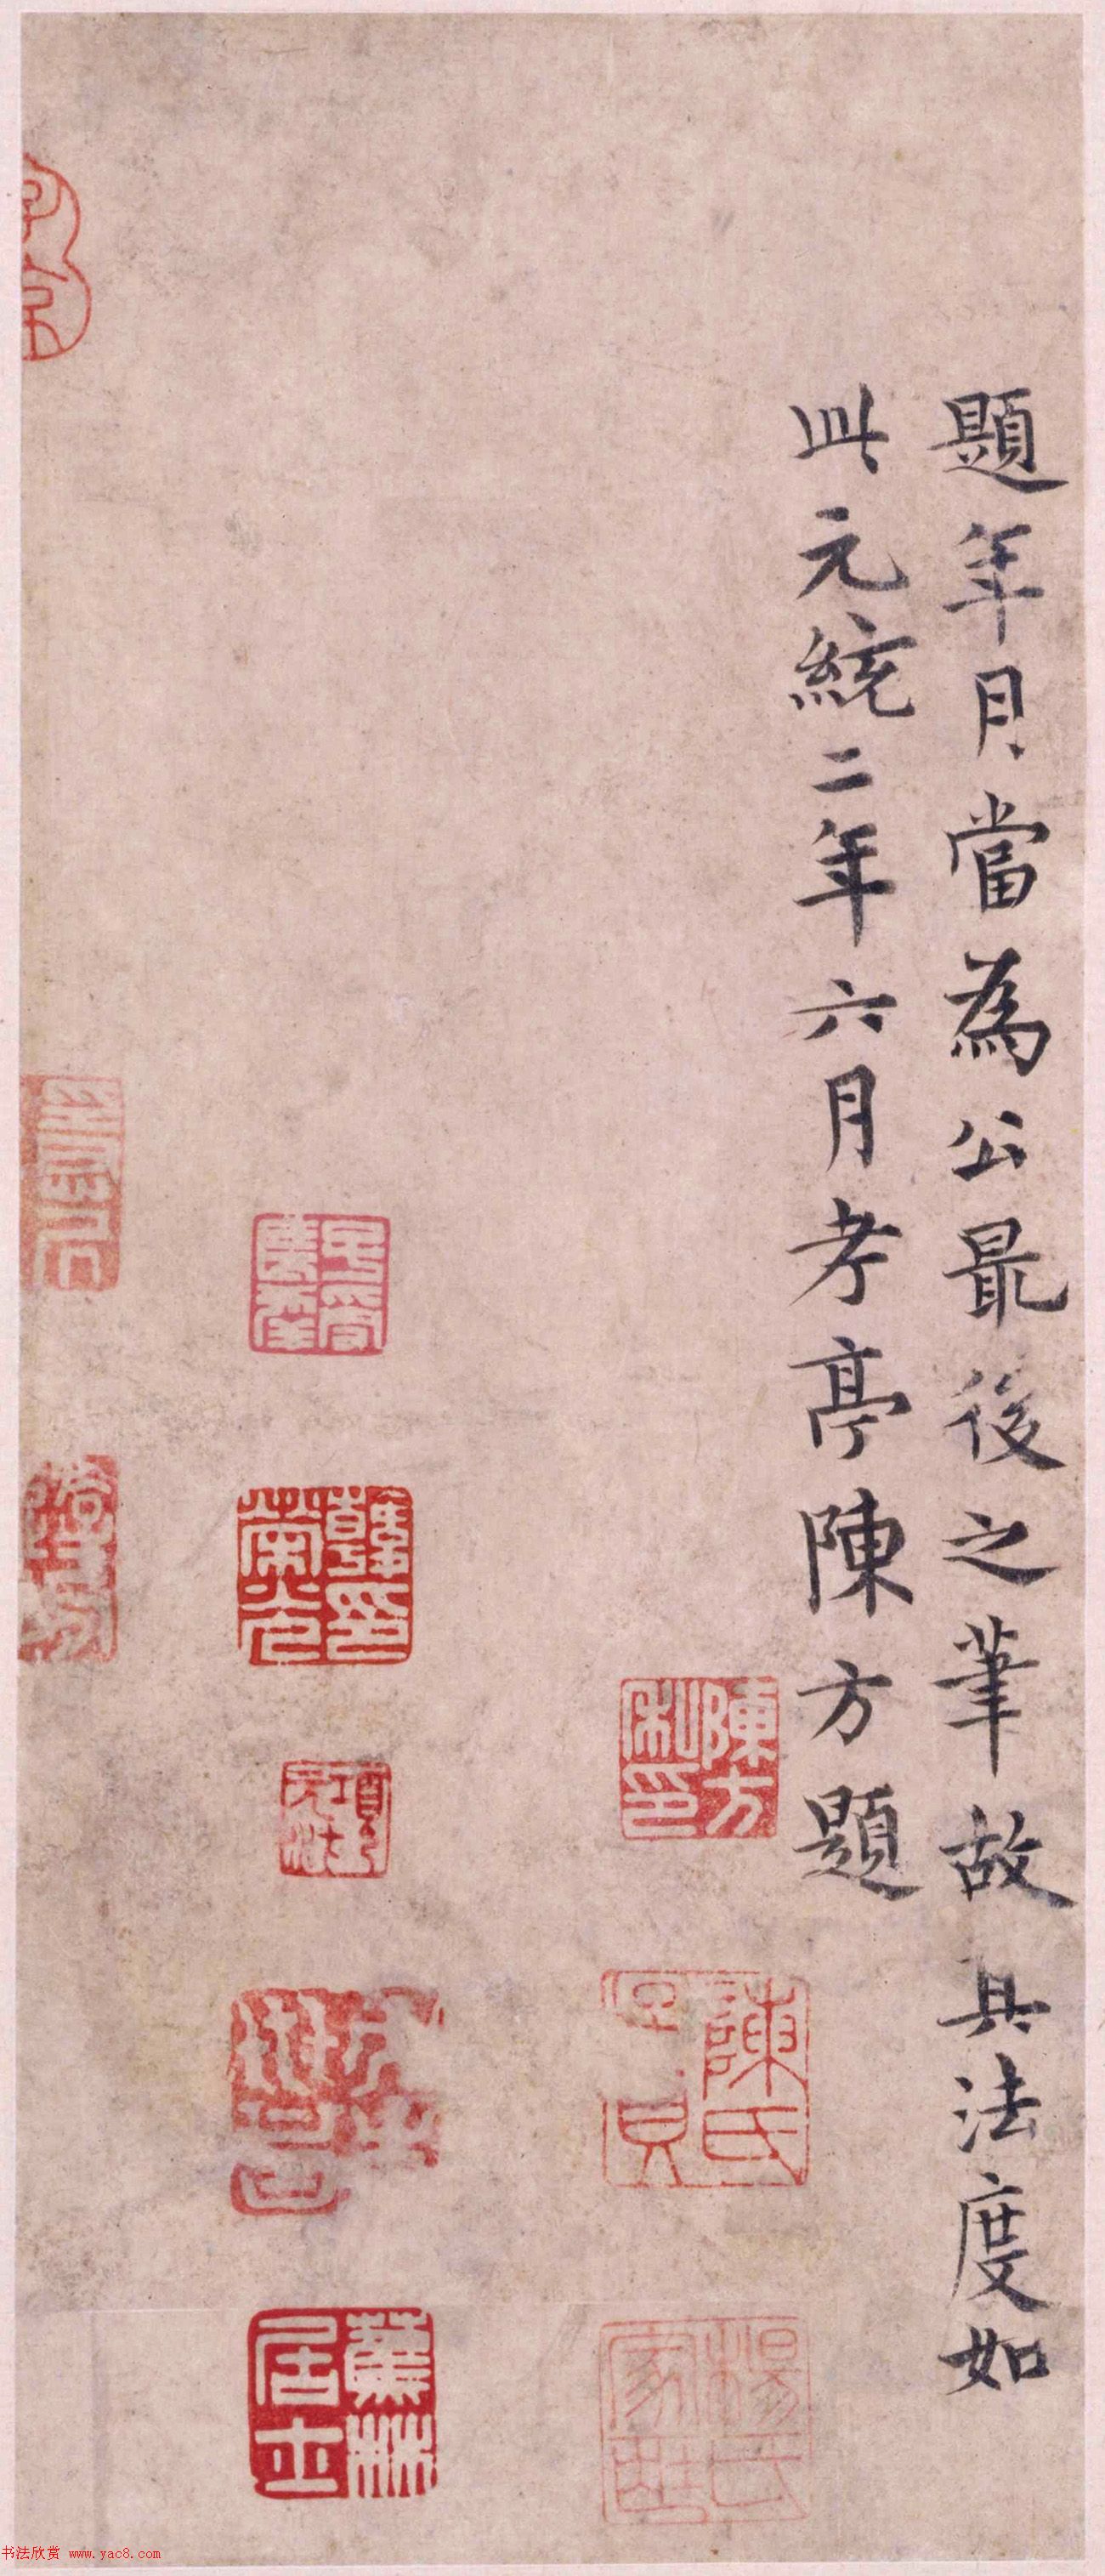 題年月當為公最後之筆故具法度如
此元統二年六月孝亭陳方題
陳方
私印
陳氏
楊氏
家藏
韓印
蕉林
居士
书法欣赏 www.yac8.com